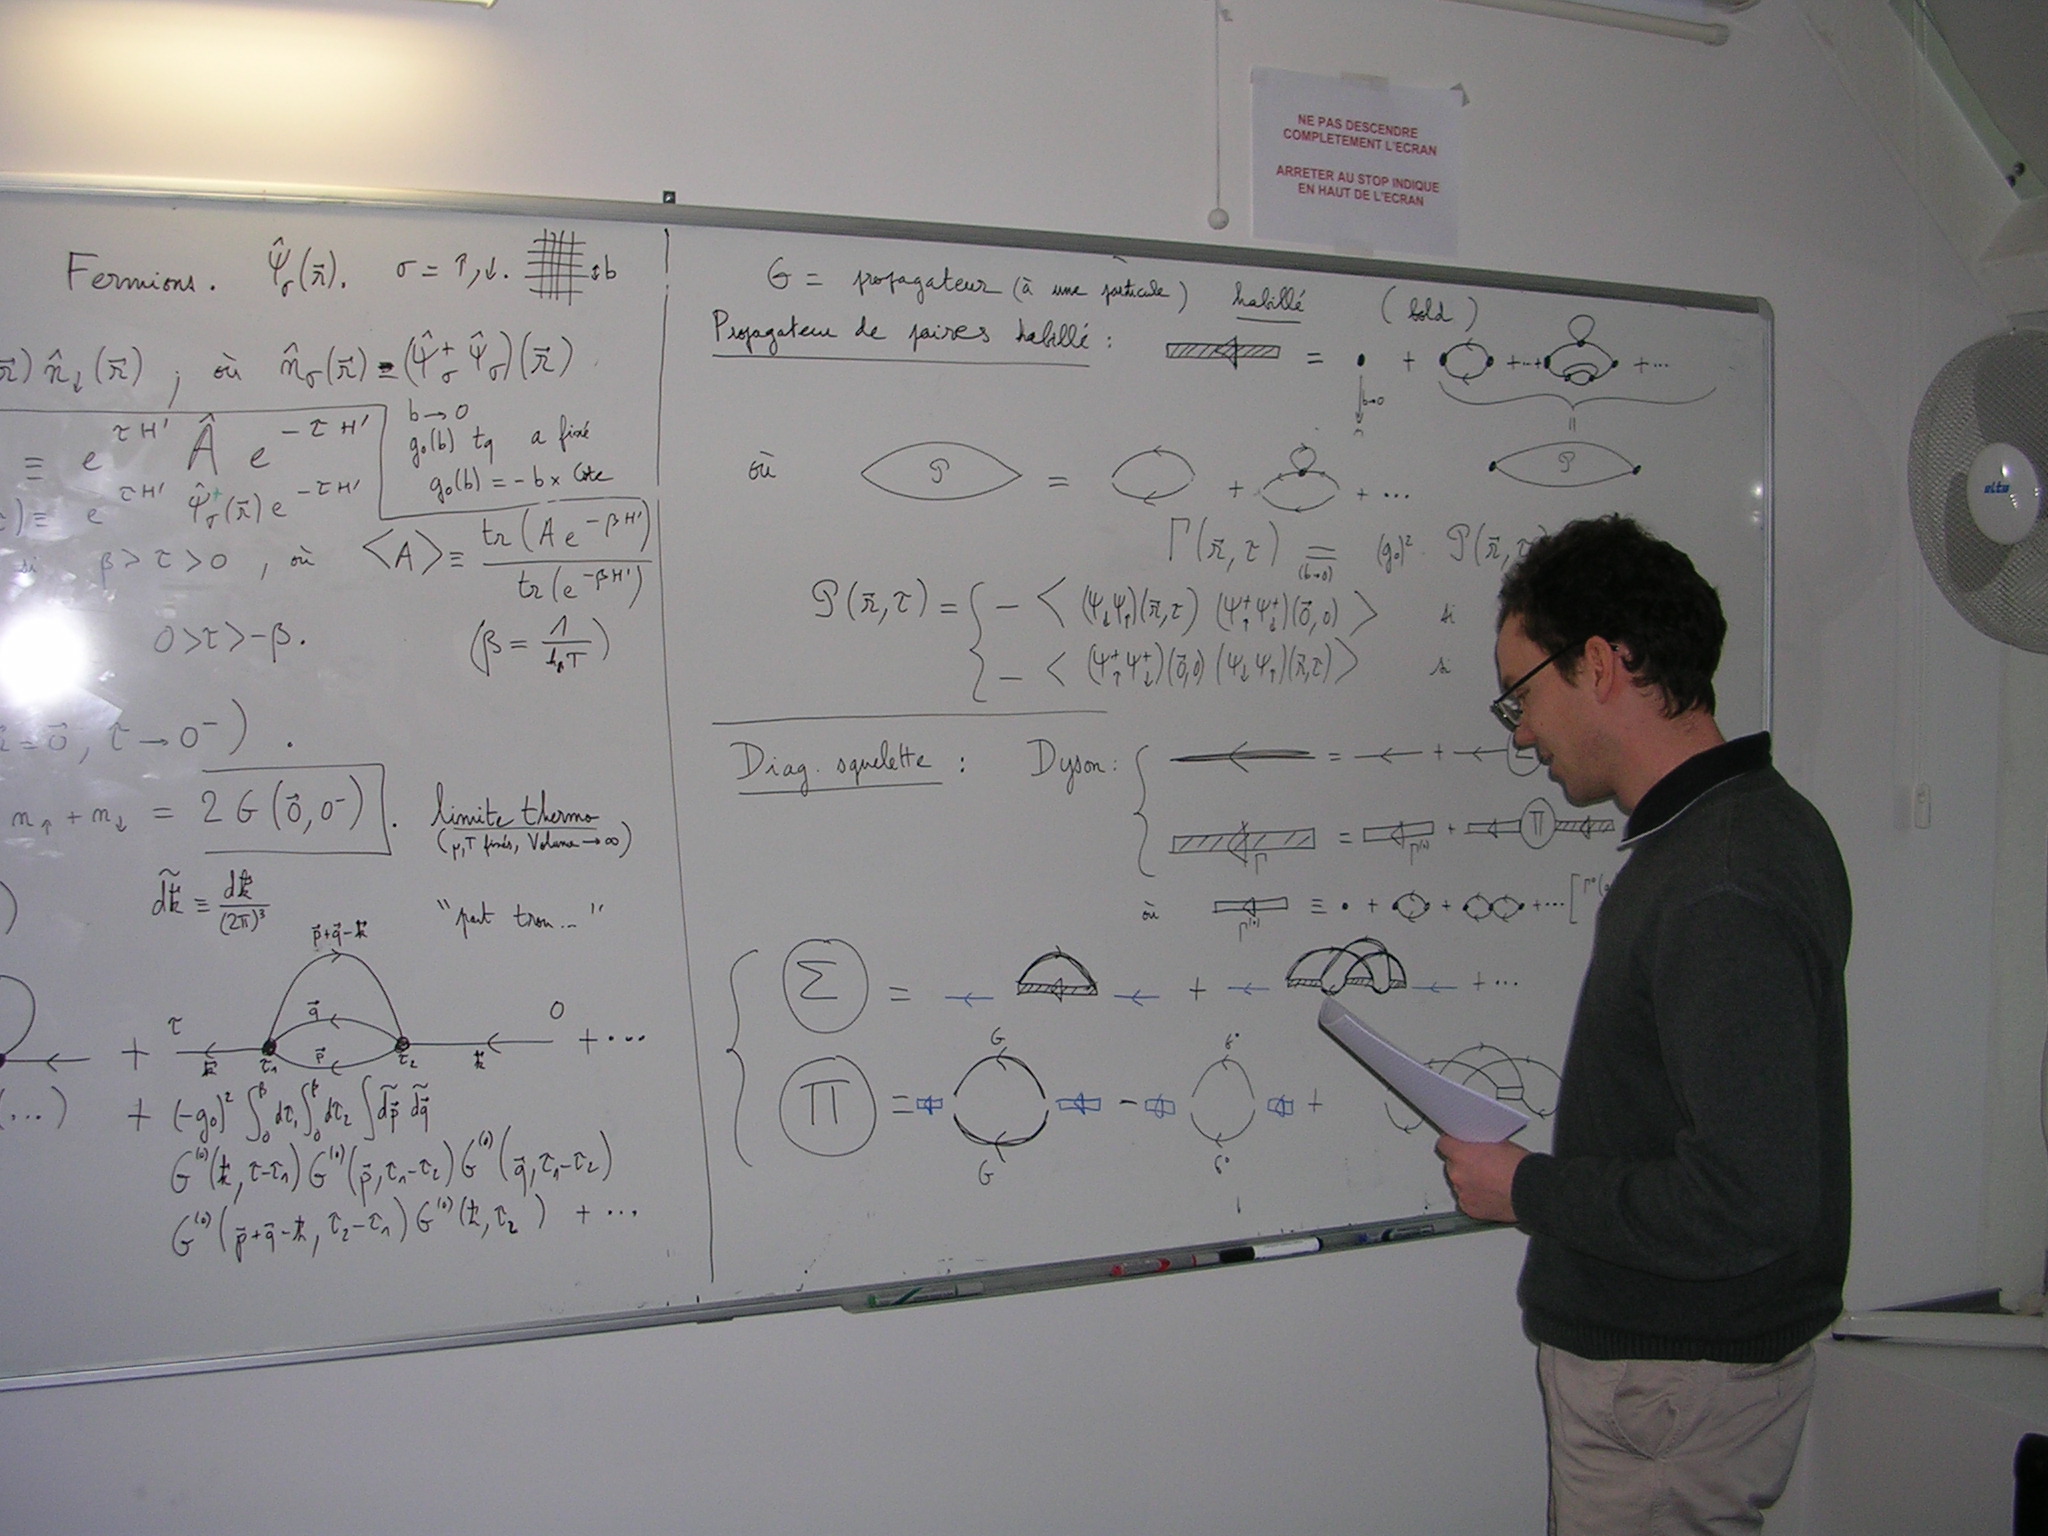 NE PAS DESCENDRE
COMPLETEMENT L'ECRAN
ARRETER AU STOP INDIQUE
EN HAUT DE L'ECRAN
Fermions. Ψ̂_σ(r⃗). σ = ↑,↓. ↕b
r⃗) n̂_↓(r⃗) ; où n̂_σ(r⃗) ≡ (Ψ̂⁺_σ Ψ̂_σ)(r⃗)
b → 0
g₀(b) tq a fixé
g₀(b) = -b × Cste
≡ e^{τH'} Â e^{-τH'}
) ≡ e^{τH'} Ψ̂⁺_σ(r⃗) e^{-τH'}
si β > τ > 0 , où <A> ≡ tr(A e^{-βH'}) / tr(e^{-βH'})
0 > τ > -β. (β = 1/k_BT)
= 0⃗, τ → 0⁻) .
n_↑ + n_↓ = 2 G(0⃗, 0⁻) . limite thermo
(μ,T fixés, Volume → ∞)
d̃k⃗ ≡ dk⃗/(2π)³ "part trou..."
p⃗+q⃗-k⃗
τ q⃗ 0
+ k⃗ τ₁ p⃗ τ₂ k⃗ + ...
(...) + (-g₀)² ∫₀^β dτ₁ ∫₀^β dτ₂ ∫ d̃p⃗ d̃q⃗
G⁽⁰⁾(k⃗, τ-τ₁) G⁽⁰⁾(p⃗, τ₁-τ₂) G⁽⁰⁾(q⃗, τ₁-τ₂)
G⁽⁰⁾(p⃗+q⃗-k⃗, τ₂-τ₁) G⁽⁰⁾(k⃗, τ₂) + ...
G = propagateur (à une particule) habillé (bold)
Propagateur de paires habillé : = • + +...+ + ...
b→0
où P = + + ... P
Γ(r⃗, τ) =_(b→0) (g₀)² P(r⃗, τ
P(r⃗, τ) = { - < (Ψ_↓Ψ_↑)(r⃗,τ) (Ψ⁺_↑Ψ⁺_↓)(0⃗,0) > si
- < (Ψ⁺_↑Ψ⁺_↓)(0⃗,0) (Ψ_↓Ψ_↑)(r⃗,τ) > si
Diag. squelette : Dyson : { = + Σ
Γ = Γ⁽⁰⁾ + Π
où Γ⁽⁰⁾ ≡ • + + + ... [ Γ⁰(
{ Σ = + + ...
Π = G G - G⁰ G⁰ +
elta